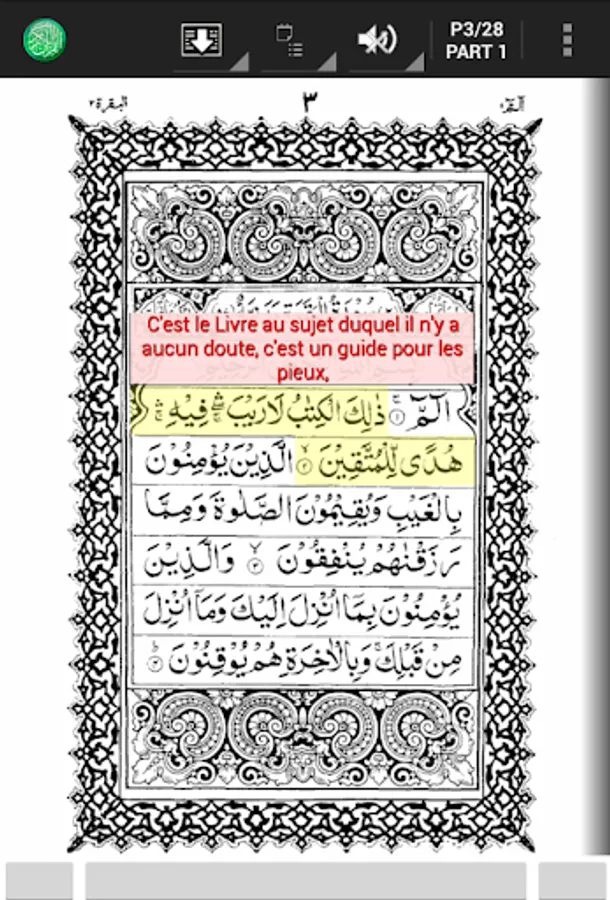 P3/28
PART 1
البقرة ٢
٣
الٓمّٓ ١
C'est le Livre au sujet duquel il n'y a
aucun doute, c'est un guide pour les
pieux,
الٓمّٓ ۚ ۝١ ذٰلِكَ الْكِتٰبُ لَا رَيْبَ ۛ فِيْهِ ۛ
هُدًى لِّلْمُتَّقِيْنَ ۝٢ الَّذِيْنَ يُؤْمِنُوْنَ
بِالْغَيْبِ وَيُقِيْمُوْنَ الصَّلٰوةَ وَمِمَّا
رَزَقْنٰهُمْ يُنْفِقُوْنَ ۝٣ وَالَّذِيْنَ
يُؤْمِنُوْنَ بِمَآ اُنْزِلَ اِلَيْكَ وَمَآ اُنْزِلَ
مِنْ قَبْلِكَ ۚ وَبِالْاٰخِرَةِ هُمْ يُوْقِنُوْنَ ۝٤